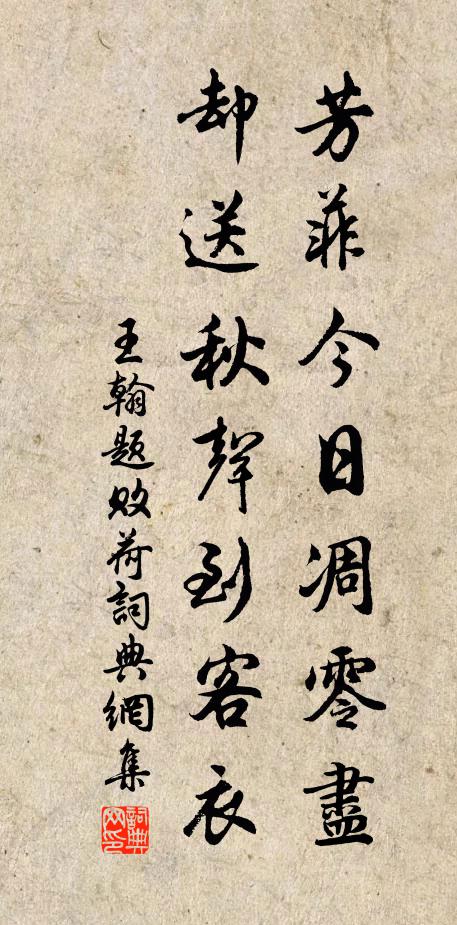 芳菲今日凋零盡
却送秋聲到客衣
王翰題敗荷詞典網集
詞典網印